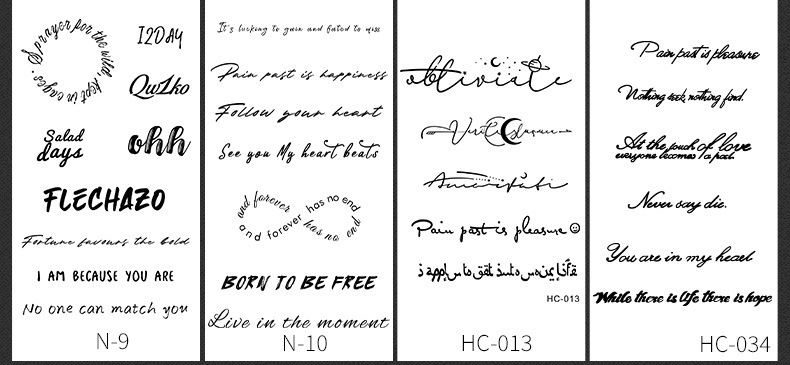 Sprayer for the wild, kept in cages.
I2DAY
QwZko
Salad
days
ohh
FLECHAZO
Fortune favours the bold
I AM BECAUSE YOU ARE
No one can match you
N-9
It's lucking to gain and fated to miss
Pain past is happiness
Follow your heart
See you My heart beats
and forever has no end
and forever has no end
BORN TO BE FREE
Live in the moment
N-10
obliviate
Amor Fati
Pain past is pleasure
HC-013
HC-013
Pain past is pleasure
Nothing seek, nothing find.
At the touch of love
everyone becomes a poet
Never say die.
You are in my heart
While there is life there is hope
HC-034